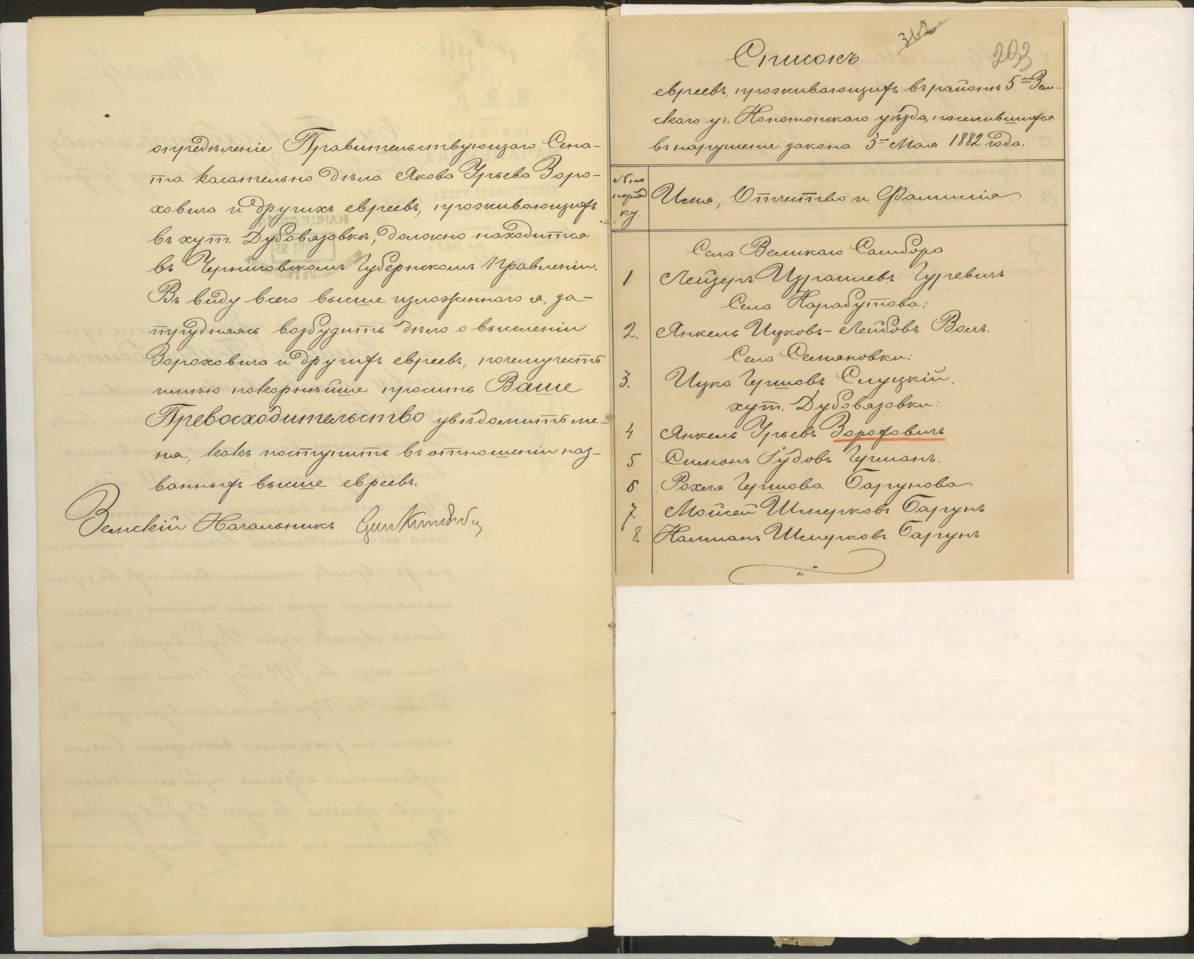 опредѣленіе Правительствующаго Сена-
та касательно дѣла Якова Урьева Зоро-
ховича и другихъ евреевъ, проживающихъ
въ хут. Дубовязовкѣ, должно находится
въ Черниговскомъ Губернскомъ Правленіи.
Въ виду всего выше изложеннаго я, за-
трудняясь возбудить дѣло о выселеніи
Зороховича и другихъ евреевъ, почему честь
имѣю покорнѣйше просить Ваше
Превосходительство увѣдомить ме-
ня, какъ поступить въ отношеніи наз-
ванныхъ выше евреевъ.
Земскій Начальникъ
362
293
Списокъ
евреевъ, проживающихъ въ районѣ 5го Зем-
скаго уч. Конотопскаго уѣзда, поселившихся
въ нарушеніе закона 3го Мая 1882 года.
№ по
поряд
ку.
Имя, Отчество и Фамилія
Села Великаго Самбора
1 Лейзеръ Израилевъ Гуревичъ
Села Карабутова:
2. Янкель Ицковъ-Лейбовъ Волъ.
Села Семяновки:
3. Ицка Гершовъ Слуцкій.
хут. Дубовязовки:
4 Янкель Урьевъ Зороховичъ
5 Симонъ Юдовъ
6 Рохля Гершова Баргунова
7. Мойсей Шмерковъ Баргунъ
8. Нахманъ Шмерковъ Баргунъ